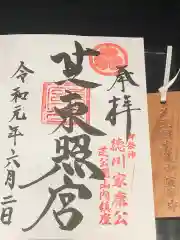 奉拝
御祭神
徳川家康公
芝公園山内鎮座
芝東照宮
令和元年六月二日